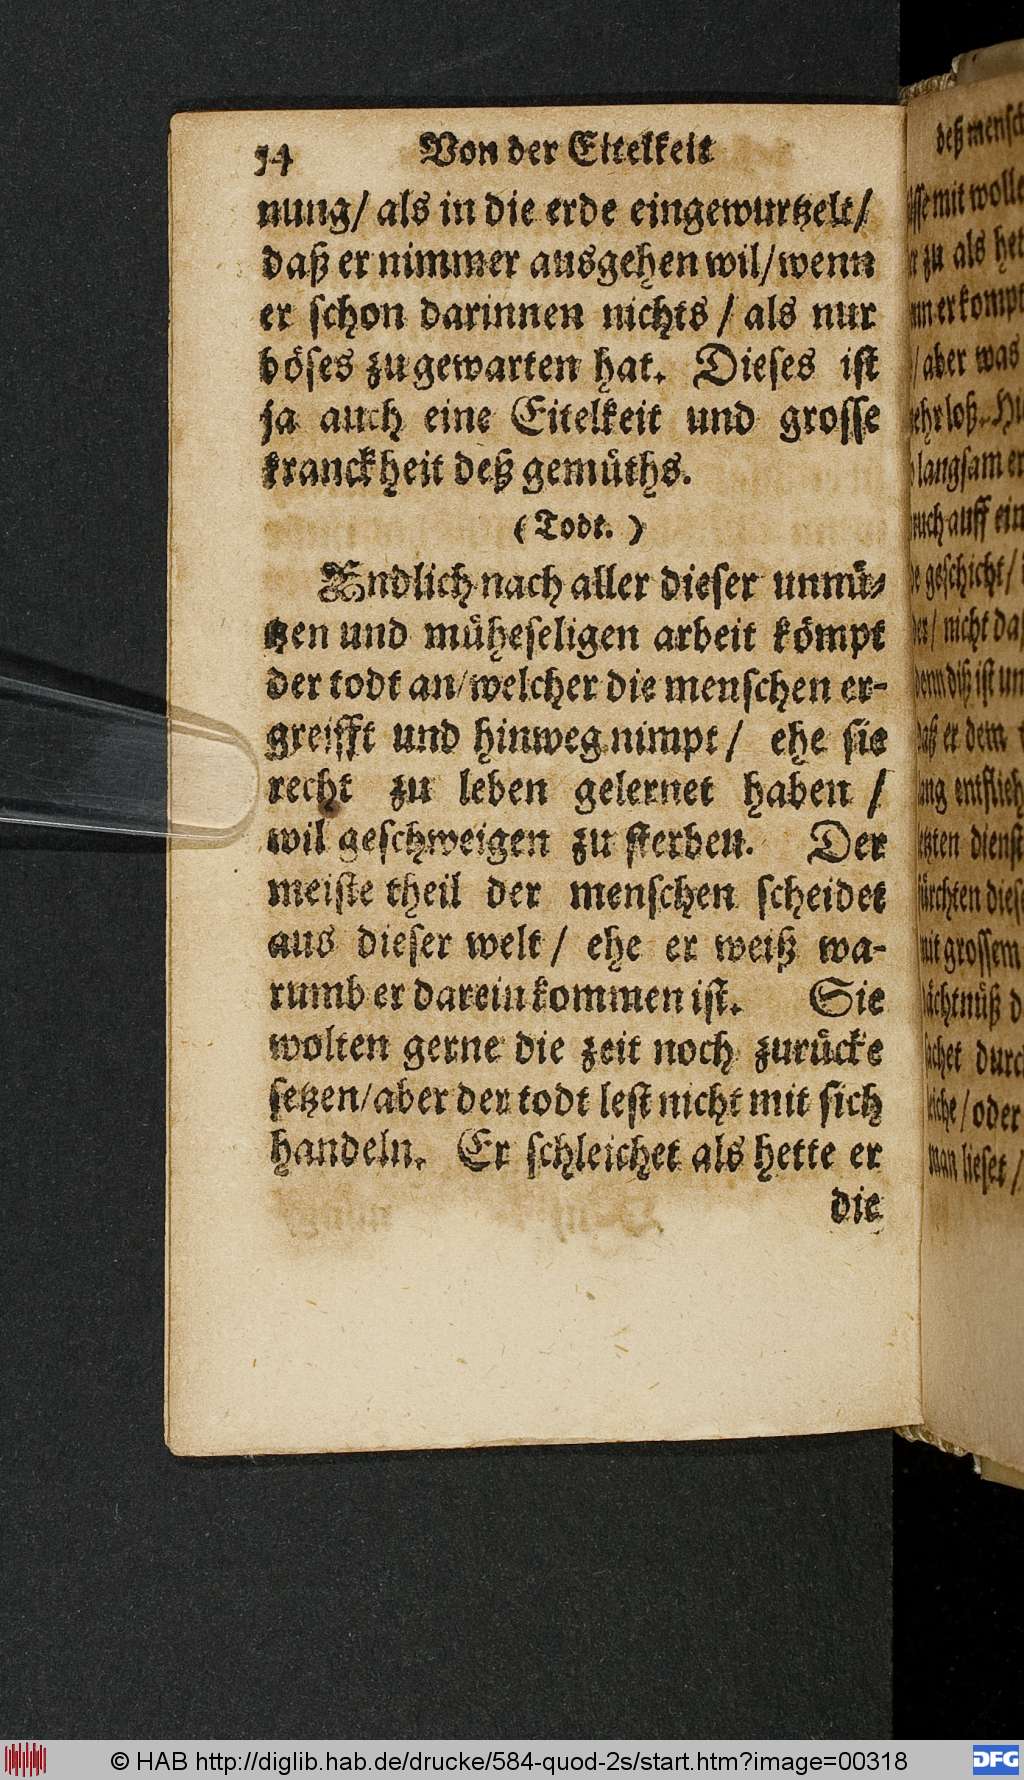 54 Von der Eitelkeit
nung/ als in die erde eingewurtzelt/
daß er nimmer ausgehen wil/wenn
er schon darinnen nichts / als nur
böses zugewarten hat. Dieses ist
ja auch eine Eitelkeit und grosse
kranckheit deß gemüths.
(Todt.)
Endlich nach aller dieser unnü-
tzen und müheseligen arbeit kömpt
der todt an/welcher die menschen er-
greifft und hinweg nimpt/ ehe sie
recht zu leben gelernet haben /
wil geschweigen zu sterben. Der
meiste theil der menschen scheidet
aus dieser welt/ ehe er weiß wa-
rumb er darein kommen ist. Sie
wolten gerne die zeit noch zurücke
setzen/aber der todt lest nicht mit sich
handeln. Er schleichet als hette er
die
deß mensch
mit wolle
zu als het
er kompt
/ aber was
loß. Hi
langsam er
auff ein
geschicht/
/ nicht da
denn diß ist un
daß er dem
entflieh
dienst
diese
mit grossem
durch
/ oder
man lieset /
© HAB http://diglib.hab.de/drucke/584-quod-2s/start.htm?image=00318
DFG